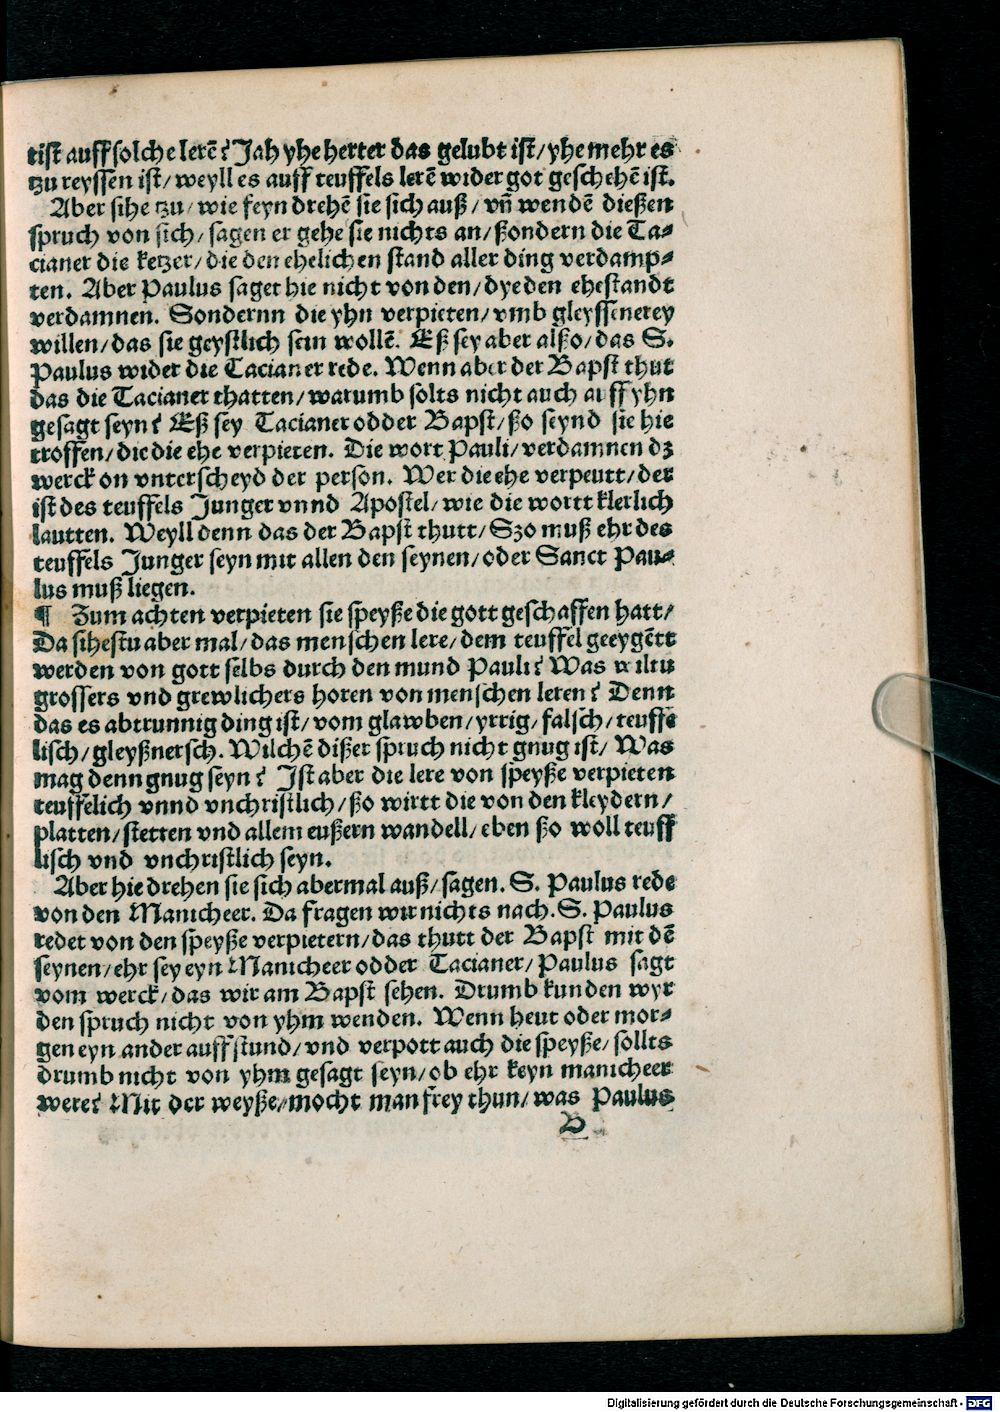 tist auff solche lerē? Jah yhe herter das gelubt ist/ yhe mehr es
tzu reyssen ist/ weyll es auff teuffels lerē wider got geschehē ist.
Aber sihe tzu/ wie feyn drehē sie sich auß/ vn̄ wendē dießen
spruch von sich/ sagen er gehe sie nichts an/ ßondern die Ta⸗
cianer die ketzer/ die den ehelichen stand aller ding verdamp⸗
ten. Aber Paulus saget hie nicht von den/ dye den ehestandt
verdamnen. Sondernn die yhn verpieten/ vmb gleyssenerey
willen/ das sie geystlich sein wollē. Eß sey aber alßo/ das S.
Paulus wider die Tacianer rede. Wenn aber der Bapst thut
das die Tacianer thatten/ warumb solts nicht auch auff yhn
gesagt seyn? Eß sey Tacianer odder Bapst/ ßo seynd sie hie
troffen/ die die ehe verpieten. Die wort Pauli/ verdamnen dz
werck on vnterscheyd der person. Wer die ehe verpeutt/ der
ist des teuffels Junger vnnd Apostel/ wie die wortt klerlich
lautten. Weyll denn das der Bapst thutt/ Szo muß ehr des
teuffels Junger seyn mit allen den seynen/ oder Sanct Pau⸗
lus muß liegen.
¶ Zum achten verpieten sie speyße die gott geschaffen hatt/
Da sihestu aber mal/ das menschen lere/ dem teuffel geeygētt
werden von gott selbs durch den mund Pauli? Was wiltu
grossers vnd grewlichers horen von menschen leren? Denn
das es abtrunnig ding ist/ vom glawben/ yrrig/ falsch/ teuffe
lisch/ gleyßnersch. Wilchē dißer spruch nicht gnug ist/ Was
mag denn gnug seyn? Ist aber die lere von speyße verpieten
teuffelich vnnd vnchristlich/ ßo wirtt die von den kleydern/
platten/ stetten vnd allem eußern wandell/ eben ßo woll teuff
lisch vnd vnchristlich seyn.
Aber hie drehen sie sich abermal auß/ sagen. S. Paulus rede
von den Manicheer. Da fragen wir nichts nach. S. Paulus
redet von den speyße verpietern/ das thutt der Bapst mit dē
seynen/ ehr sey eyn Manicheer odder Tacianer/ Paulus sagt
vom werck/ das wir am Bapst sehen. Drumb kunden wyr
den spruch nicht von yhm wenden. Wenn heut oder mor⸗
gen eyn ander auff stund/ vnd verpott auch die speyße/ sollts
drumb nicht von yhm gesagt seyn/ ob ehr keyn manicheer
were? Mit der weyße/ mocht man frey thun/ was Paulus
B
Digitalisierung gefördert durch die Deutsche Forschungsgemeinschaft - DFG